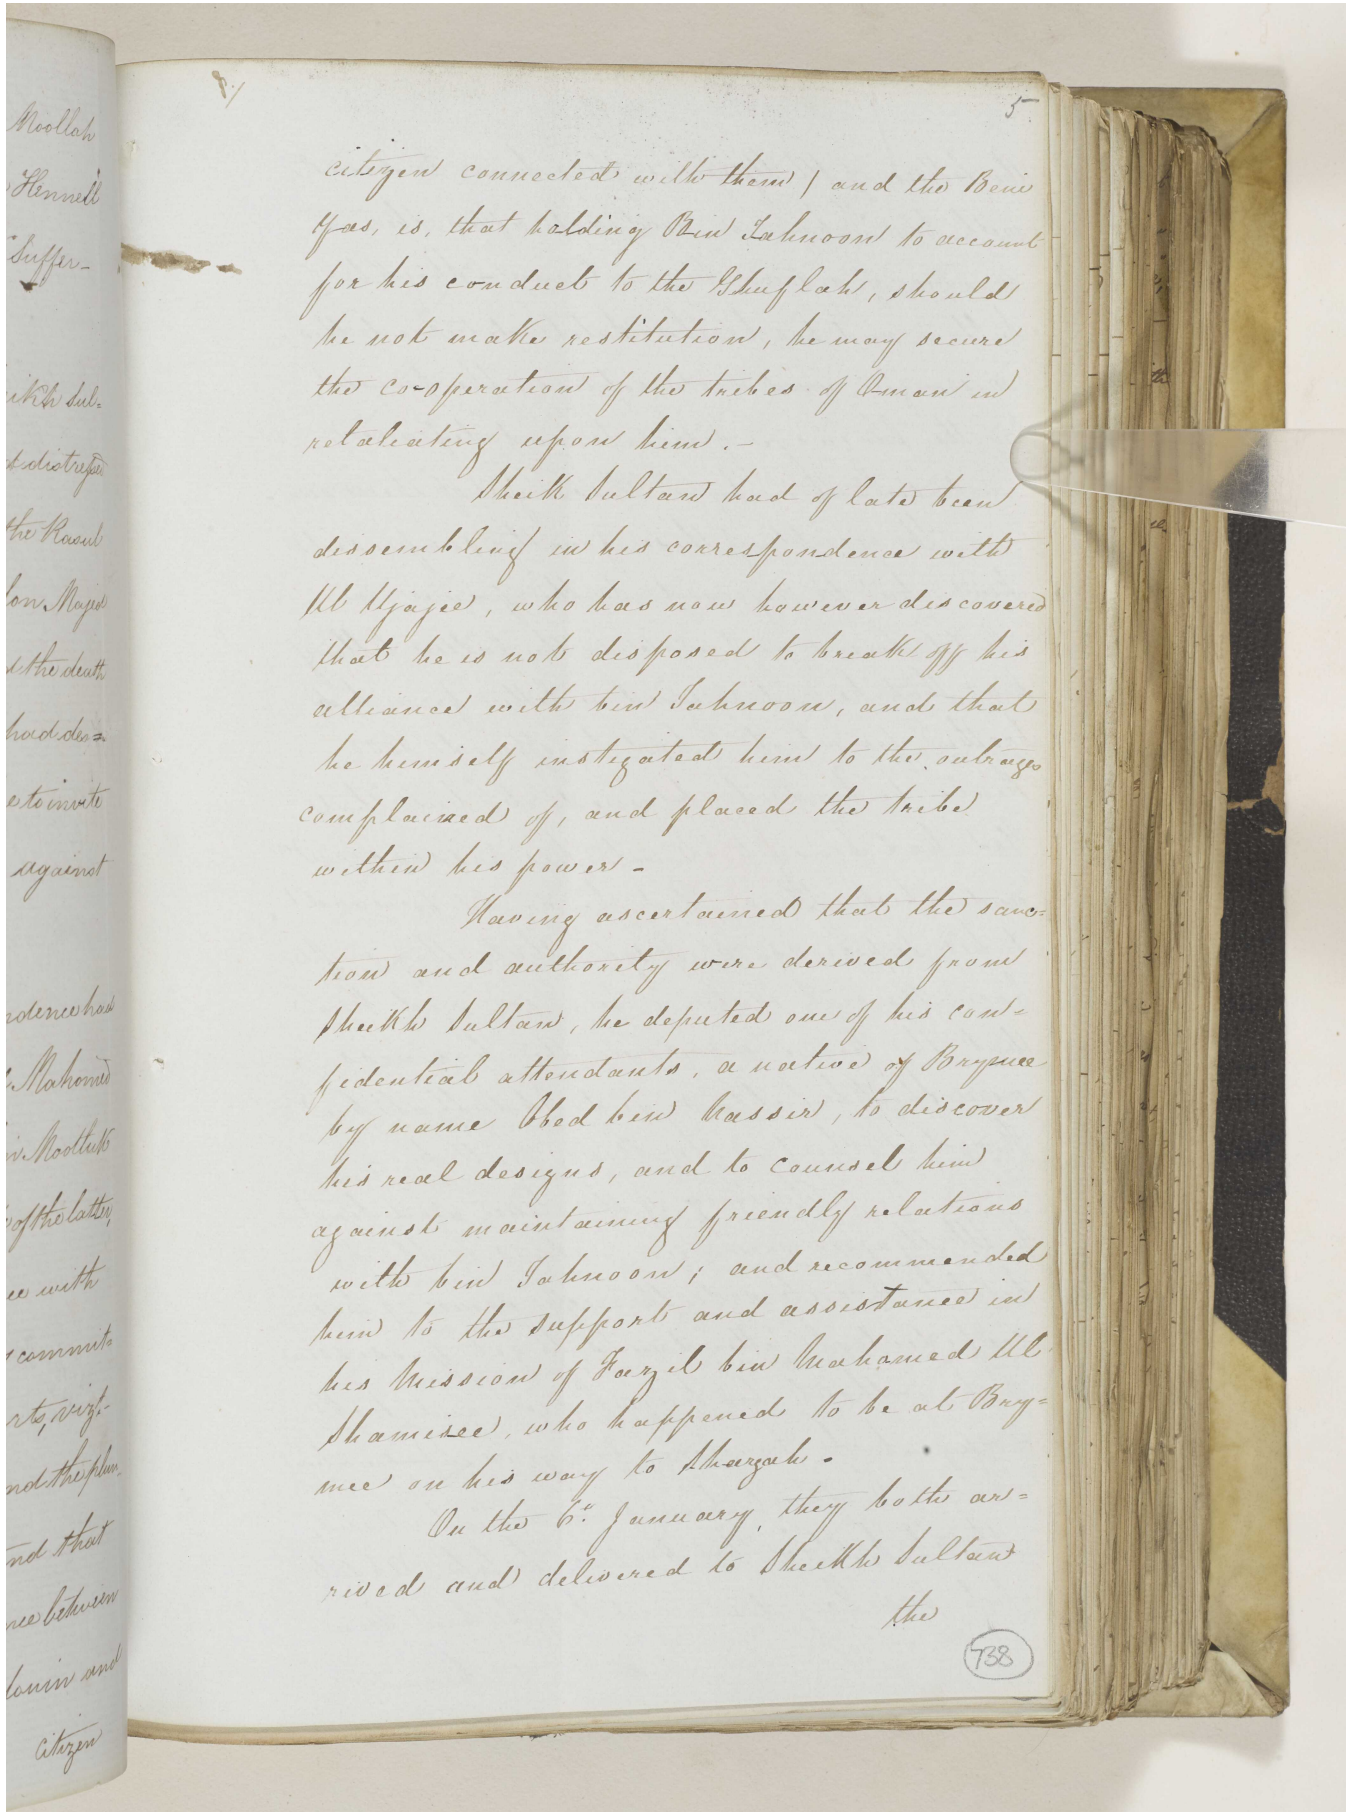 Moollah
Hennell
Suffer-
ikh Sul=
distressed
the Rasul
on Majed
the death
had des=
to invite
against
dence had
Mahomed
Moothik
of the latter,
with
commit=
rts, vizt.-
nd the plun
nd that
between
and
citizen
8/
5
citizen connected with them) and the Beni
Yas, is, that holding Bin Tahnoon to account
for his conduct to the Ghuflah, should
he not make restitution, he may secure
the co-operation of the tribes of Oman in
retaliating upon him. -
Sheik Sultan had of late been
dissembling in his correspondence with
Ul Ujajee, who has now however discovered
that he is not disposed to break off his
alliance with bin Tahnoon, and that
he himself instigated him to the outrages
complained of, and placed the tribe
within his power -
Having ascertained that the sanc=
tion and authority were derived from
Sheikh Sultan, he deputed one of his con=
fidential attendants, a native of Brymee
by name Obed bin Nassir, to discover
his real designs, and to counsel him
against maintaining friendly relations
with bin Tahnoon; and recommended
him to the support and assistance in
his mission of Fazil bin Mahomed Ul
Shamisee, who happened to be at Bry=
mee on his way to Shargah.
On the 6th January, they both ar=
rived and delivered to Sheikh Sultan
the
738